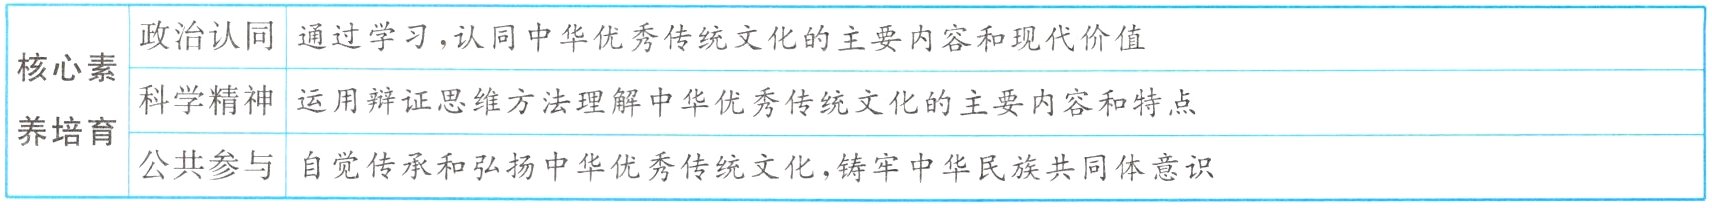 核心素
养培育
政治认同 通过学习,认同中华优秀传统文化的主要内容和现代价值
科学精神 运用辩证思维方法理解中华优秀传统文化的主要内容和特点
公共参与 自觉传承和弘扬中华优秀传统文化,铸牢中华民族共同体意识